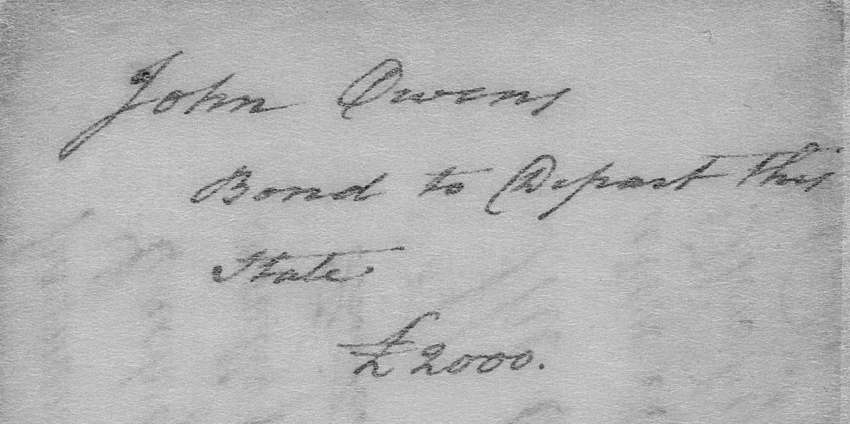 John Owens
Bond to Depart This
State
£2000.